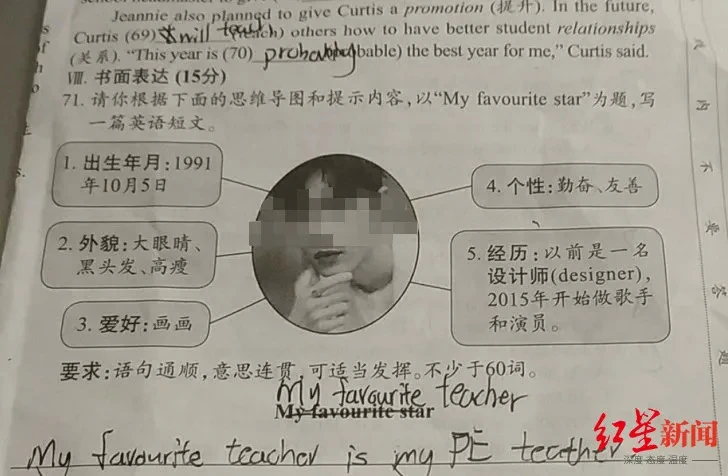 Jeannie also planned to give Curtis a promotion (提升). In the future,
Curtis (69) will teach (teach) others how to have better student relationships
(关系). “This year is (70) probably (probable) the best year for me,” Curtis said.
Ⅷ. 书面表达 (15分)
71. 请你根据下面的思维导图和提示内容,以“My favourite star”为题,写
一篇英语短文。
1. 出生年月:1991
年10月5日
2. 外貌:大眼睛、
黑头发、高瘦
3. 爱好:画画
4. 个性:勤奋、友善
5. 经历:以前是一名
设计师(designer),
2015年开始做歌手
和演员。
要求:语句通顺,意思连贯,可适当发挥。不少于60词。
My favourite teacher
My favourite star
My favourite teacher is my PE teather
红星新闻
深度·态度·温度
内
不
要
答
题